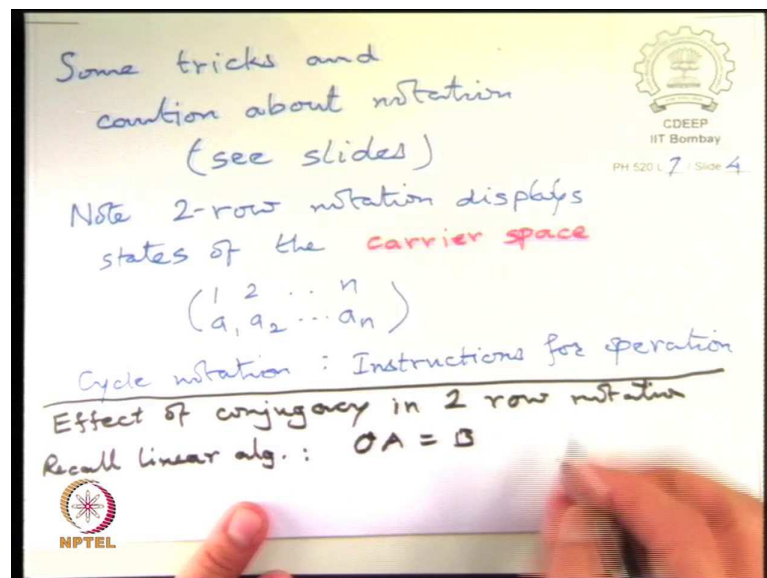 Some tricks and
caution about notation
(see slides)
CDEEP
IIT Bombay
PH 520 L 7 / Slide 4
Note 2-row notation displays
states of the carrier space
(1 2 .. n
a₁ a₂ ... aₙ)
Cycle notation : Instructions for operation
Effect of conjugacy in 2 row notation
Recall linear alg. : OA = B
NPTEL